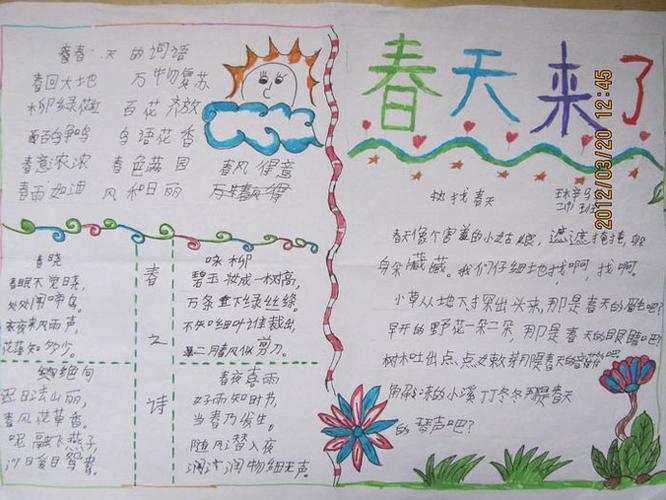 春天的词语
春回大地 万物复苏
柳绿花红 百花齐放
百鸟争鸣 鸟语花香
春意浓浓 春色满园 春风得意
春雨如油 风和日丽
春晓
春眠不觉晓，
处处闻啼鸟。
夜来风雨声，
花落知多少。
绝句
迟日江山丽，
春风花草香。
泥融飞燕子，
沙日爰目鸳鸯。
春之诗
咏柳
碧玉妆成一树高，
万条垂下绿丝绦。
不知细叶谁裁出，
二月春风似剪刀。
春夜喜雨
好雨知时节，
当春乃发生。
随风潜入夜
润物细无声。
春天来了
2012/03/20 12:45
找找春天
春天像个害羞的小姑娘，遮遮掩掩，躲
躲藏藏。我们仔细地找啊，找啊。
小草从地下探出头来，那是春天的眉毛吧？
早开的野花一朵二朵，那是春天的眼睛吧？
树木吐出点点嫩芽，那是春天的音符吧？
解冻的小溪丁丁冬冬，那是春天
的琴声吧？